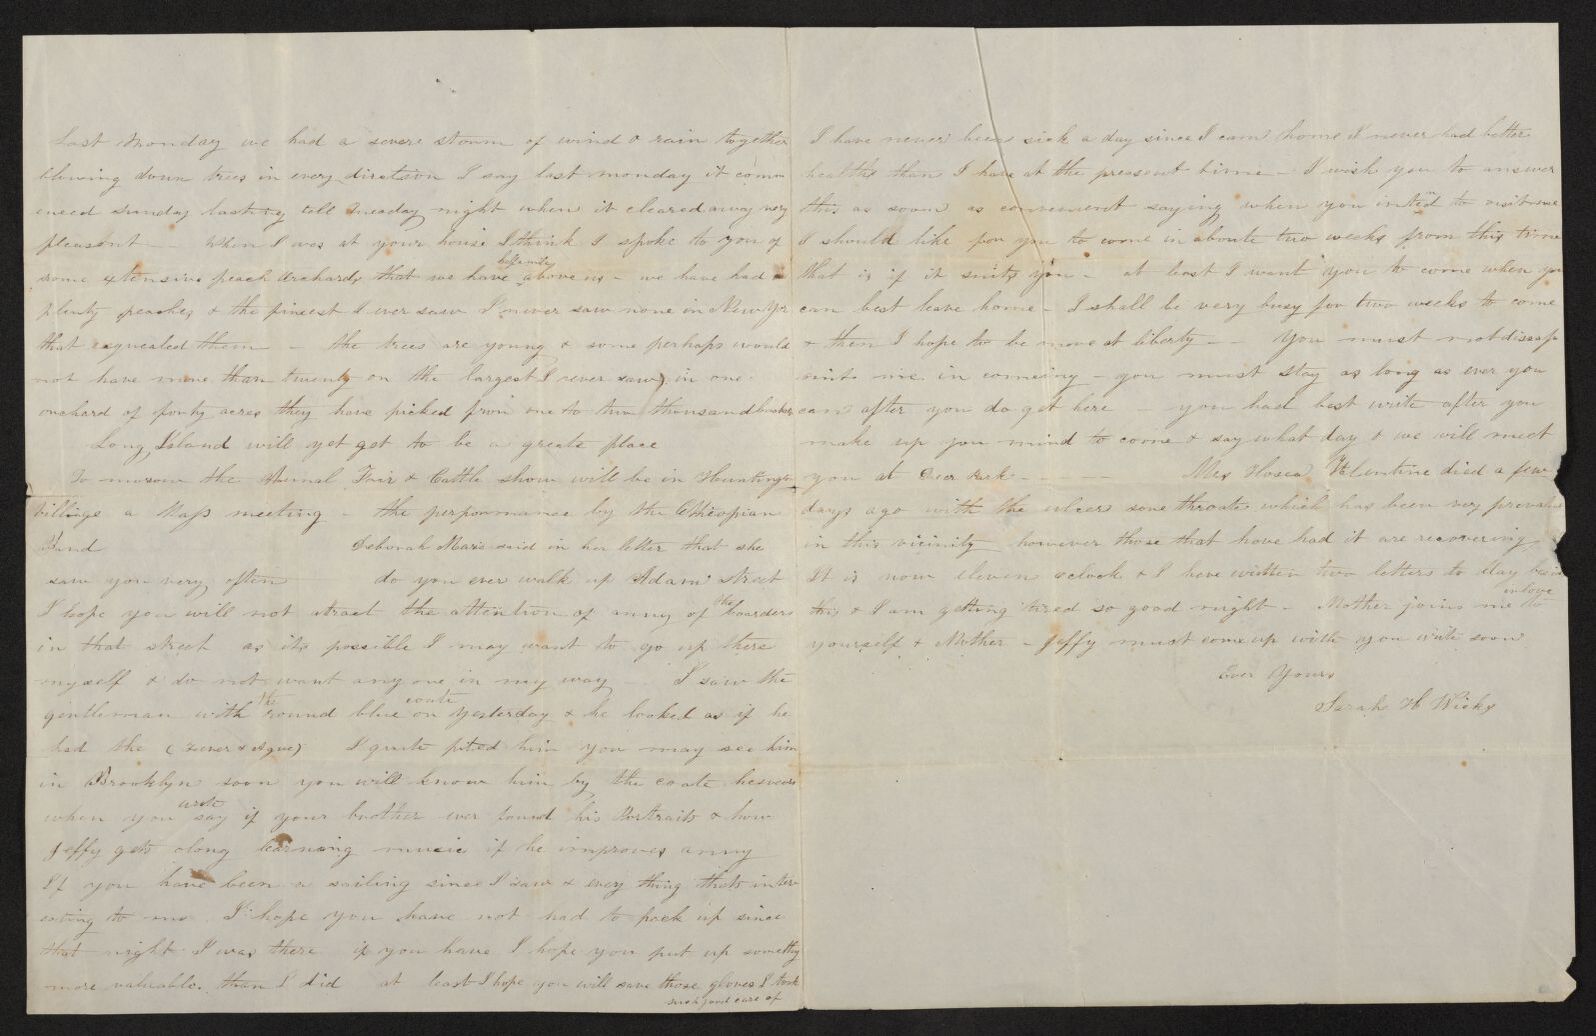 Last Monday we had a severe storm of wind & rain together
blowing down trees in every diretion I say last monday it comm
enced sunday lasting till Tuesday night when it cleared away very
pleasant - - When I was at your house I think I spoke to you of
some extensive peach orchards that we have half a mile above us - we have had
plenty peaches & the finest I ever saw I never saw none in New Yor
that eaqualed them - the trees are young & some perhaps would
not have more than twenty on the largest I ever saw in one
orchard of forty acres they have picked from one to two thousand baskes
Long Island will yet get to be a greate place
To morrow the Annual Fair & Cattle show will be in Huntington
village a Mass meeting - the performance by the Etheopian
Band Deborah Maria said in her letter that she
saw you very often do you ever walk up Adam street
I hope you will not atract the attention of anny of the boarders
in that street as its possible I may want to go up there
myself & do not want any one in my way - I saw the
gentleman with the round blue coate on yesterday & he looked as if he
had the (Fever & Ague) I quite pited him you may see him
in Brooklyn soon you will know him by the coate he wears
when you write say if your brother ever found his Portraits & how
Jeffy gets olong learning music if he improves anny
If you have been a sailing since I saw & every thing thats inter
esting to me I hope you have not had to pack up since
that night I was there if you have I hope you put up somethg
more valuable than I did at least I hope you will save those gloves I took
such good care of
I have never been sick a day since I came home I never had better
health than I have at the preasent time - I wish you to answer
this as soon as convenient saying when you intend to visit me
I should like for you to come in aboute two weeks from this time
that is if it suits you - at least I want you to come when you
can best leave home - I shall be very busy for two weeks to come
& then I hope to be more at liberty - - You must not dissap
oint me in comeing - you must stay as long as ever you
can after you do get here - you had best write after you
make up you mind to come & say what day & we will meet
you at Deer Park - - - - Mrs Hosea Valentine died a few
days ago with the ulcer sore throate which has been very prevale
in this vicinity however those that have had it are recovering
It is now eleven oclock & I have written two letters to day
this & I am getting tired so good night - Mother joins me in love to
yourself & Mother - Jeffy must come up with you write soon
Ever Yours
Sarah H Wicks